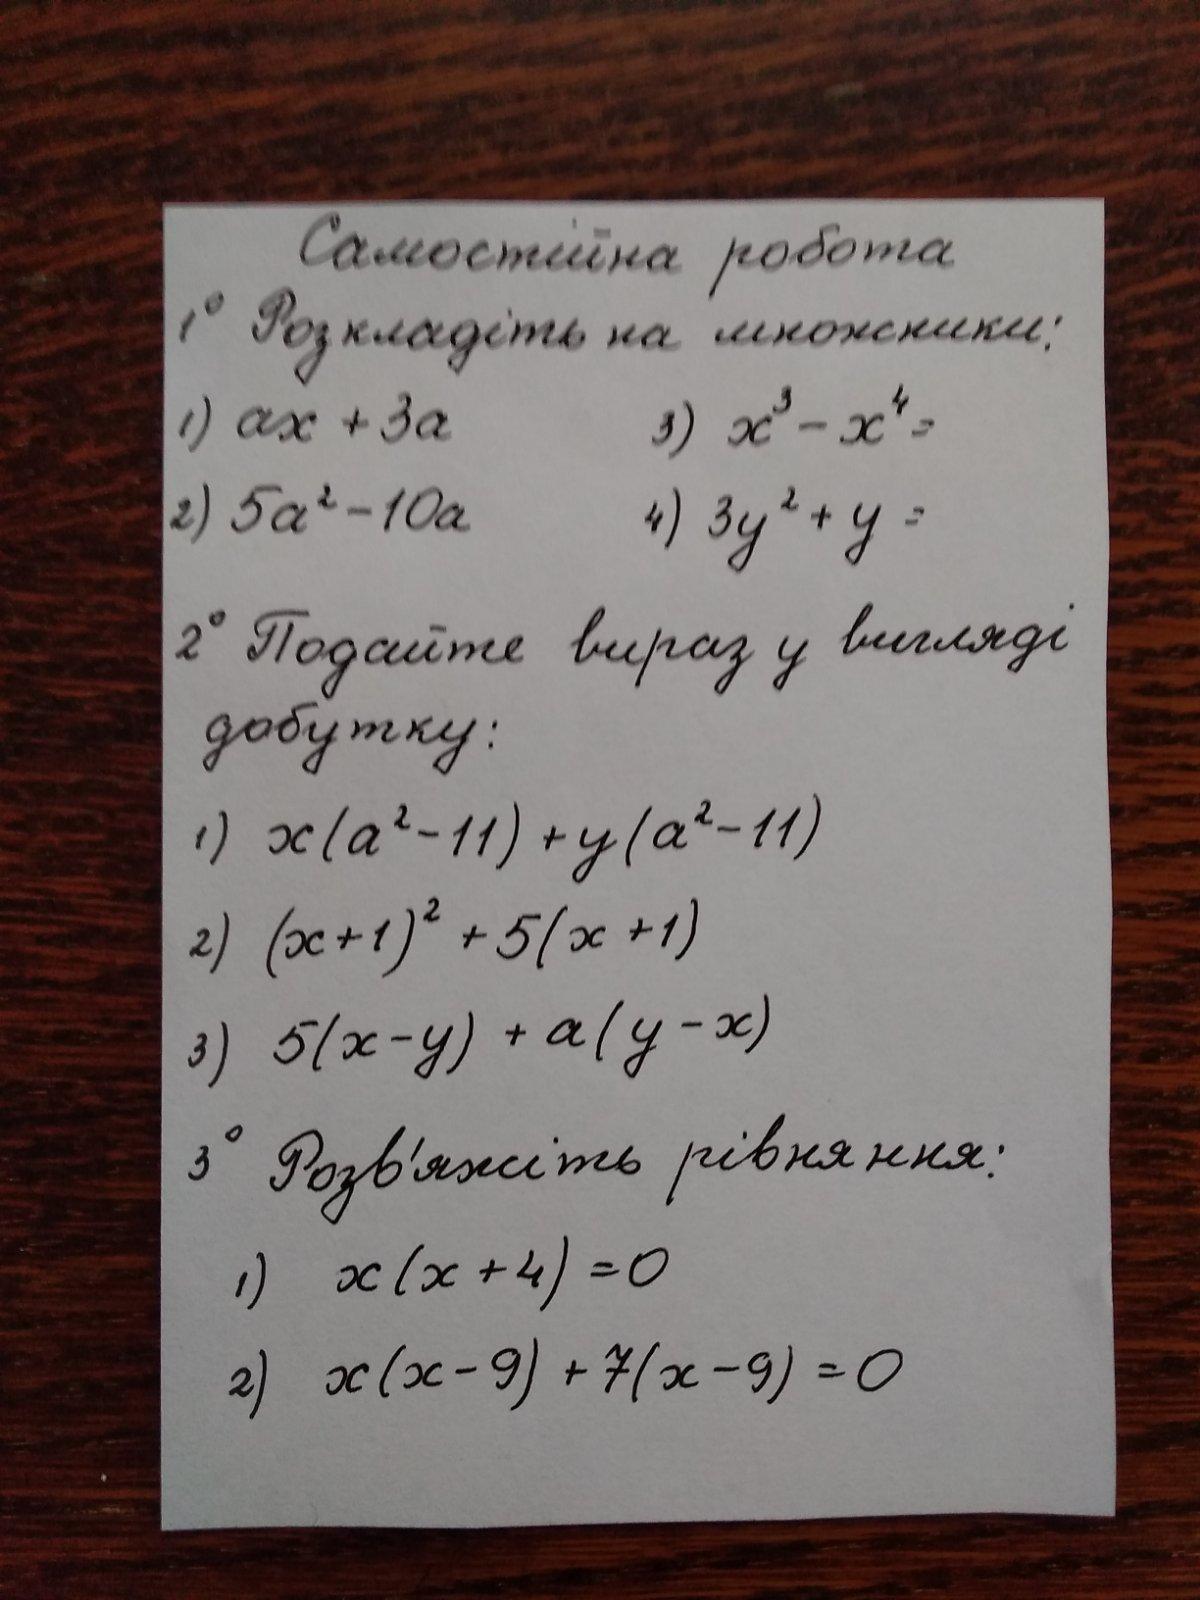 Самостійна робота
1° Розкладіть на множники:
1) ax + 3a 3) x³ - x⁴ =
2) 5a² - 10a 4) 3y² + y =
2° Подайте вираз у вигляді
добутку:
1) x(a² - 11) + y(a² - 11)
2) (x+1)² + 5(x+1)
3) 5(x-y) + a(y-x)
3° Розв'яжіть рівняння:
1) x(x+4) = 0
2) x(x-9) + 7(x-9) = 0